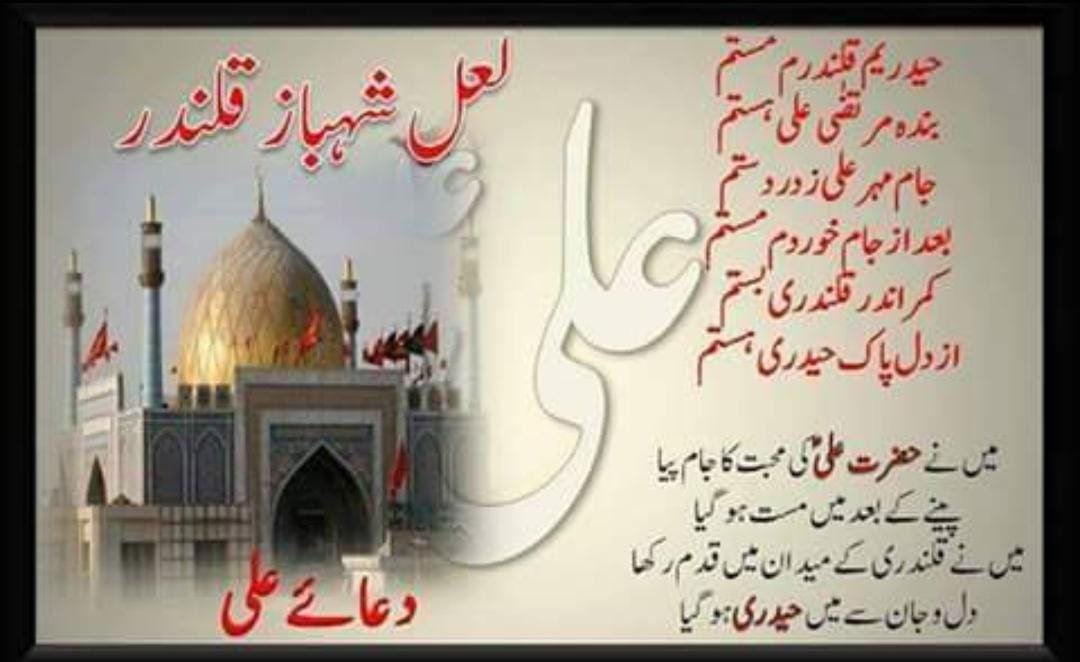 لعل شہباز قلندر
حیدریم قلندرم مستم
بندہ مرتضیٰ علی ہستم
جام مہر علی ز در دستم
بعد از جام خوردم مستم
کمر اندر قلندری بستم
از دل پاک حیدری ہستم
علیؑ
میں نے حضرت علیؑ کی محبت کا جام پیا
پینے کے بعد میں مست ہو گیا
میں نے قلندری کے میدان میں قدم رکھا
دل و جان سے میں حیدری ہو گیا
دعائے علی